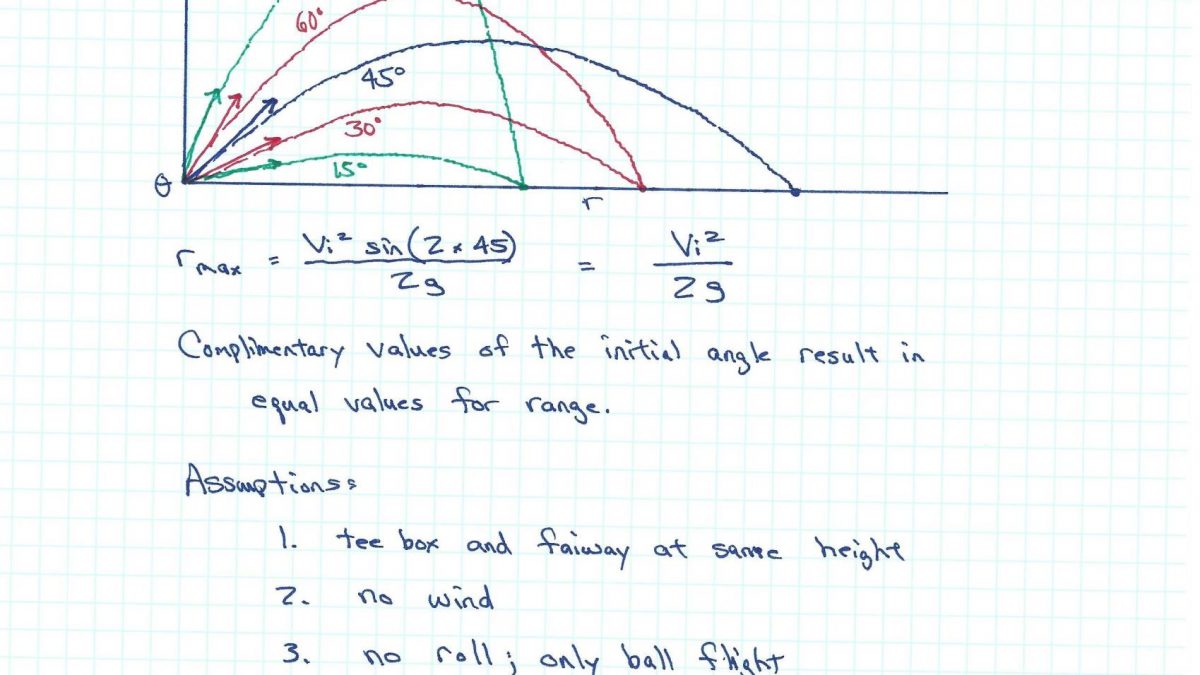 60°
45°
30°
15°
θ
r
r max = Vi² sin(2 × 45) / 2g = Vi² / 2g
Complimentary values of the initial angle result in
equal values for range.
Assumptions:
1. tee box and faiway at same height
2. no wind
3. no roll; only ball flight